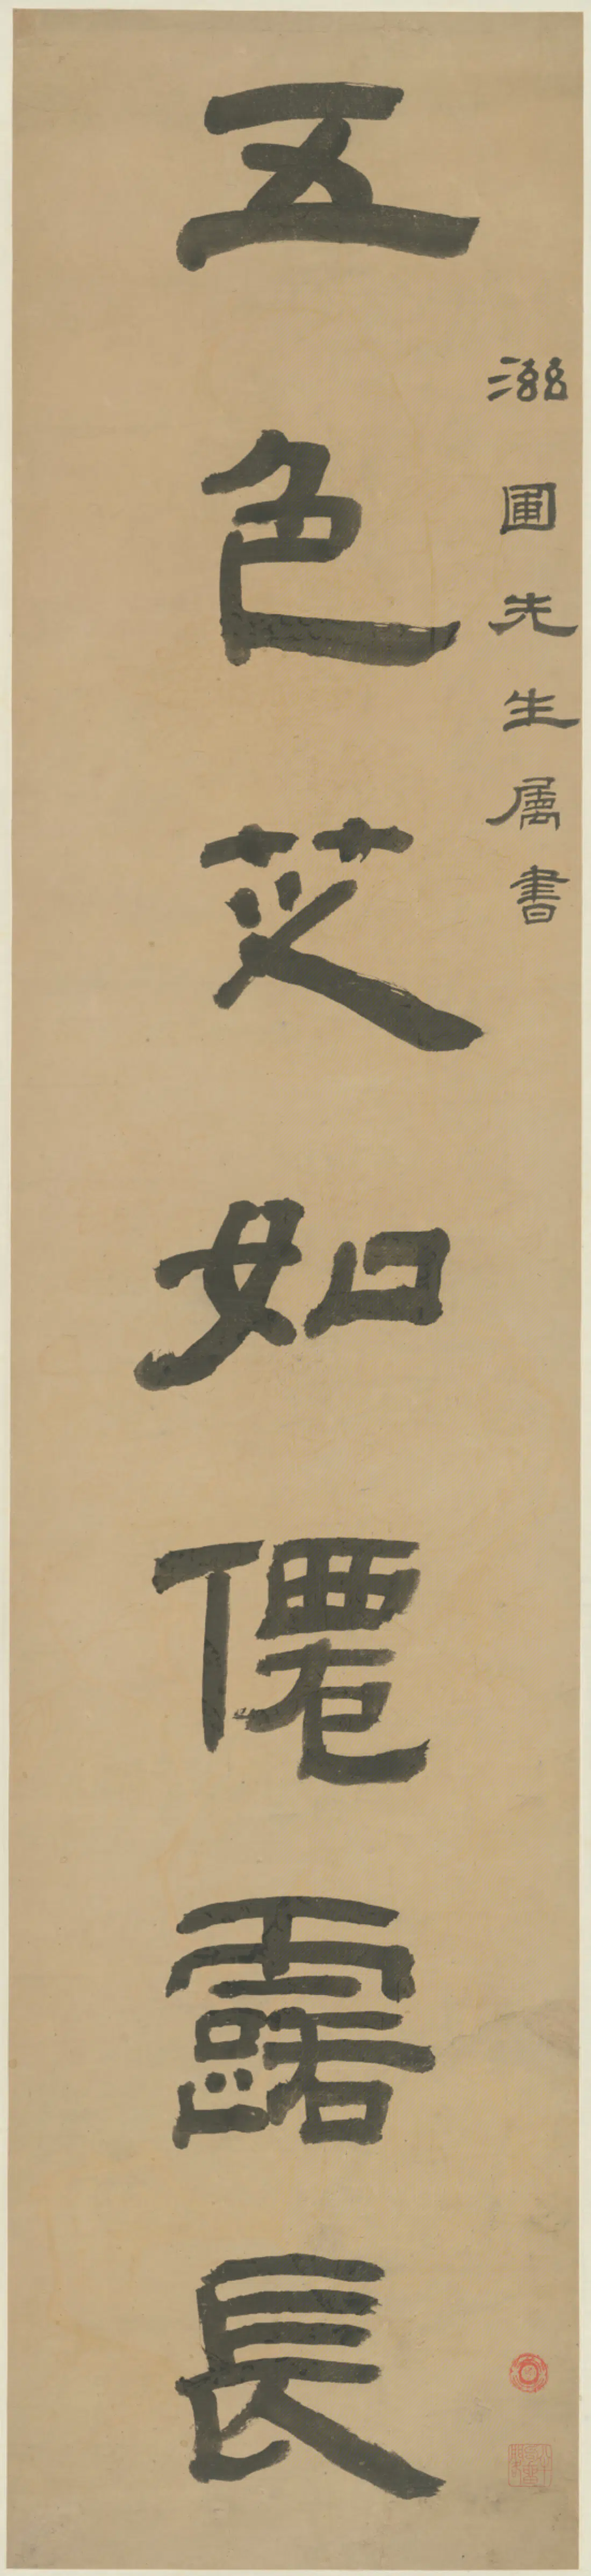 滋圃先生属書
五色芝如僊露長